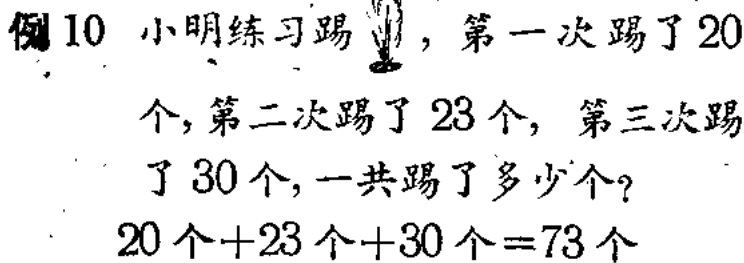 例10 小明练习踢，第一次踢了20
个，第二次踢了23个，第三次踢
了30个，一共踢了多少个？
20个+23个+30个=73个